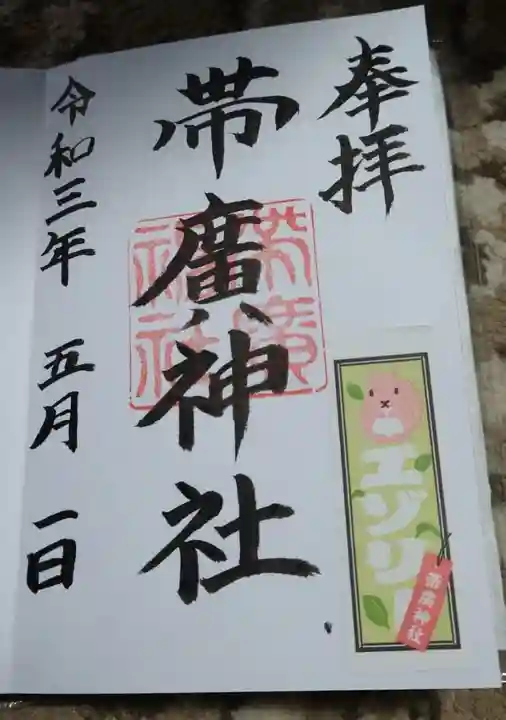 奉拝
帯廣神社
帯廣
神社
令和三年 五月 一日
エゾリ
帯廣神社